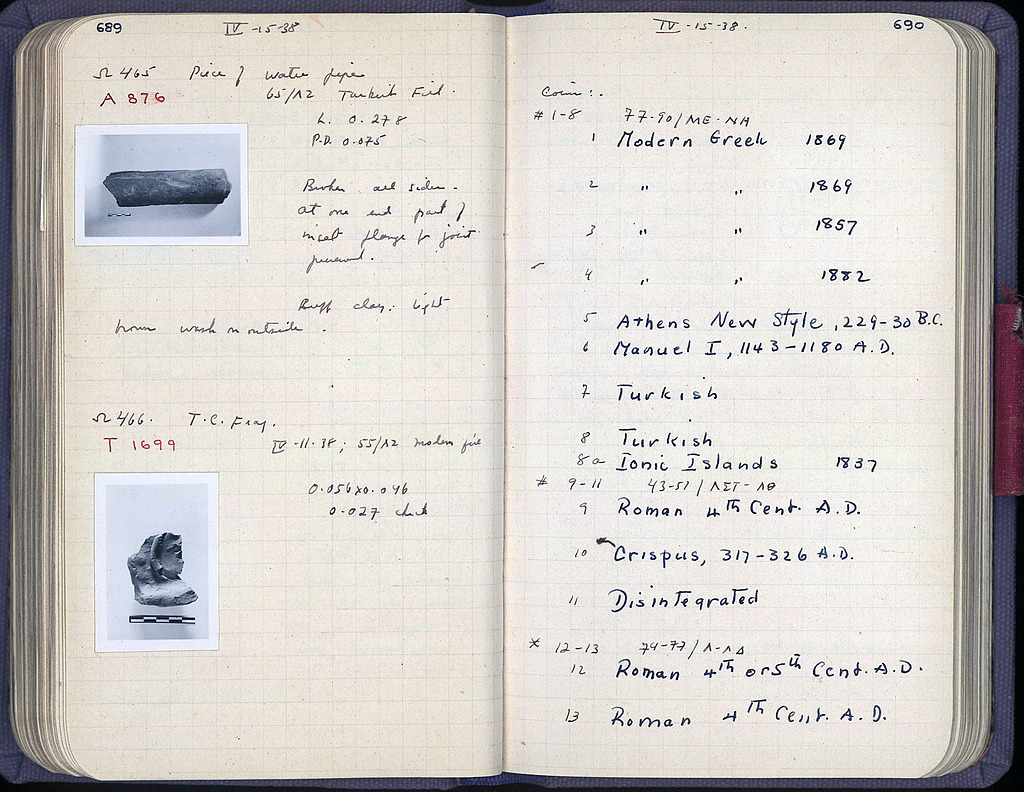 689
IV -15-38
Ω 465 Piece of water pipe
A 876
65/ΛΖ Turkish Fill.
L. 0.278
P.D. 0.075
Broken all sides.
at one end part of
inset flange for joint
preserved.
Buff clay. light
brown wash on outside.
Ω 466. T.C. Frag.
T 1699
IV -11-38; 55/ΛΖ modern fill
0.056x0.046
0.027 thick
IV -15-38.
690
Coins:.
# 1-8 77-90/ΜΕ-ΝΑ
1 Modern Greek 1869
2 " " 1869
3 " " 1857
4 " " 1882
5 Athens New Style, 229-30 B.C.
6 Manuel I, 1143-1180 A.D.
7 Turkish
8 Turkish
8a Ionic Islands 1837
# 9-11 43-51/ΛΣΤ-ΛΘ
9 Roman 4th Cent. A.D.
10 Crispus, 317-326 A.D.
11 Disintegrated
* 12-13 74-77/Λ-ΛΔ
12 Roman 4th or 5th Cent. A.D.
13 Roman 4th Cent. A.D.